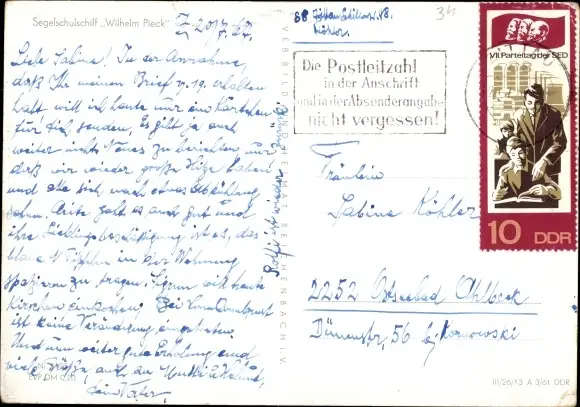 Segelschulschiff „Wilhelm Pieck“
Z, 20.7.67.
Liebe Sabine! In der Annahme,
daß Ihr meinen Brief v. 19. erhalten
habt will ich heute nur ein Kärtchen
für Dich senden. Es gibt ja auch
weiter nichts Neues zu berichten nur
daß wir wieder große Hitze haben
und alle sich nach etwas Abkühlung
sehnen. geht es auch gut und
ihre Lieblingsbeschäftigung ist es, das
blaue Töpfchen in der Wohnung
spazieren zu tragen. will heute
Kirschen einkochen. Bei
ist keine Veränderung eingetreten.
Und nun weiter gute Erholung und
viele Grüße, auch an Mutti
dein Vater.
ist wieder
VEB BILD UND HEIMAT REICHENBACH I. V.
88
Köhler
34
Die Postleitzahl
in der Anschrift
und in der Absenderangabe
nicht vergessen!
VII. Parteitag der SED
10 DDR
Fräulein
Sabine Köhler
2252 Ostseebad Ahlbeck
Dünenstr. 56 bei
III/26/13 A 3/61 DDR